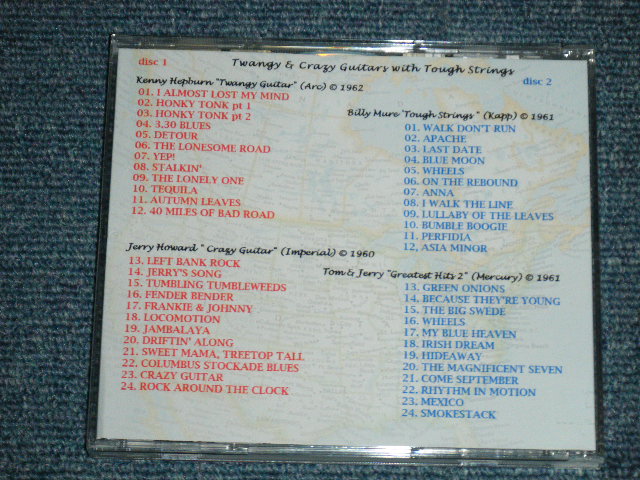 Twangy & Crazy Guitars with Tough Strings
disc 1
Kenny Hepburn "Twangy Guitar" (Arc) © 1962
01. I ALMOST LOST MY MIND
02. HONKY TONK pt 1
03. HONKY TONK pt 2
04. 3.30 BLUES
05. DETOUR
06. THE LONESOME ROAD
07. YEP!
08. STALKIN'
09. THE LONELY ONE
10. TEQUILA
11. AUTUMN LEAVES
12. 40 MILES OF BAD ROAD
Jerry Howard " Crazy Guitar" (Imperial) © 1960
13. LEFT BANK ROCK
14. JERRY'S SONG
15. TUMBLING TUMBLEWEEDS
16. FENDER BENDER
17. FRANKIE & JOHNNY
18. LOCOMOTION
19. JAMBALAYA
20. DRIFTIN' ALONG
21. SWEET MAMA, TREETOP TALL
22. COLUMBUS STOCKADE BLUES
23. CRAZY GUITAR
24. ROCK AROUND THE CLOCK
disc 2
Billy Mure "Tough Strings " (Kapp) © 1961
01. WALK DON'T RUN
02. APACHE
03. LAST DATE
04. BLUE MOON
05. WHEELS
06. ON THE REBOUND
07. ANNA
08. I WALK THE LINE
09. LULLABY OF THE LEAVES
10. BUMBLE BOOGIE
11. PERFIDIA
12, ASIA MINOR
Tom & Jerry "Greatest Hits 2" (Mercury) © 1961
13. GREEN ONIONS
14. BECAUSE THEY'RE YOUNG
15. THE BIG SWEDE
16. WHEELS
17. MY BLUE HEAVEN
18. IRISH DREAM
19. HIDEAWAY
20. THE MAGNIFICENT SEVEN
21. COME SEPTEMBER
22. RHYTHM IN MOTION
23. MEXICO
24. SMOKESTACK